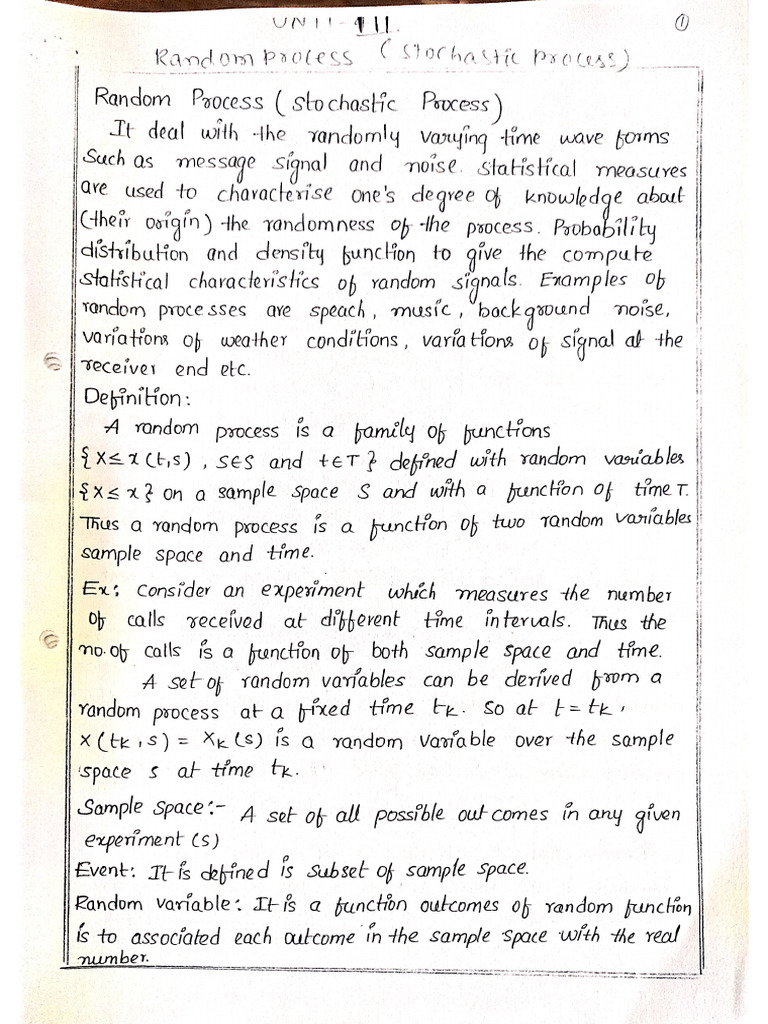 UNIT-III.
①
Random Process (Stochastic Process)
Random Process (Stochastic Process)
It deal with the randomly varying time wave forms
Such as message signal and noise. Statistical measures
are used to characterise one's degree of knowledge about
(their origin) the randomness of the process. Probability
distribution and density function to give the compute
statistical characteristics of random signals. Examples of
random processes are speach, music, background noise,
variations of weather conditions, variations of signal at the
receiver end etc.
Definition:
A random process is a family of functions
{X≤x(t,s), S∈S and t∈T} defined with random variables
{X≤x} on a sample space S and with a function of time T.
Thus a random process is a function of two random variables
sample space and time.
Ex: Consider an experiment which measures the number
of calls received at different time intervals. Thus the
no.of calls is a function of both sample space and time.
A set of random variables can be derived from a
random process at a fixed time tK. So at t=tK,
X(tK,s) = XK(s) is a random variable over the sample
space s at time tK.
Sample space:- A set of all possible out comes in any given
experiment (s)
Event: It is defined is subset of sample space.
Random variable: It is a function outcomes of random function
is to associated each outcome in the sample space with the real
number.